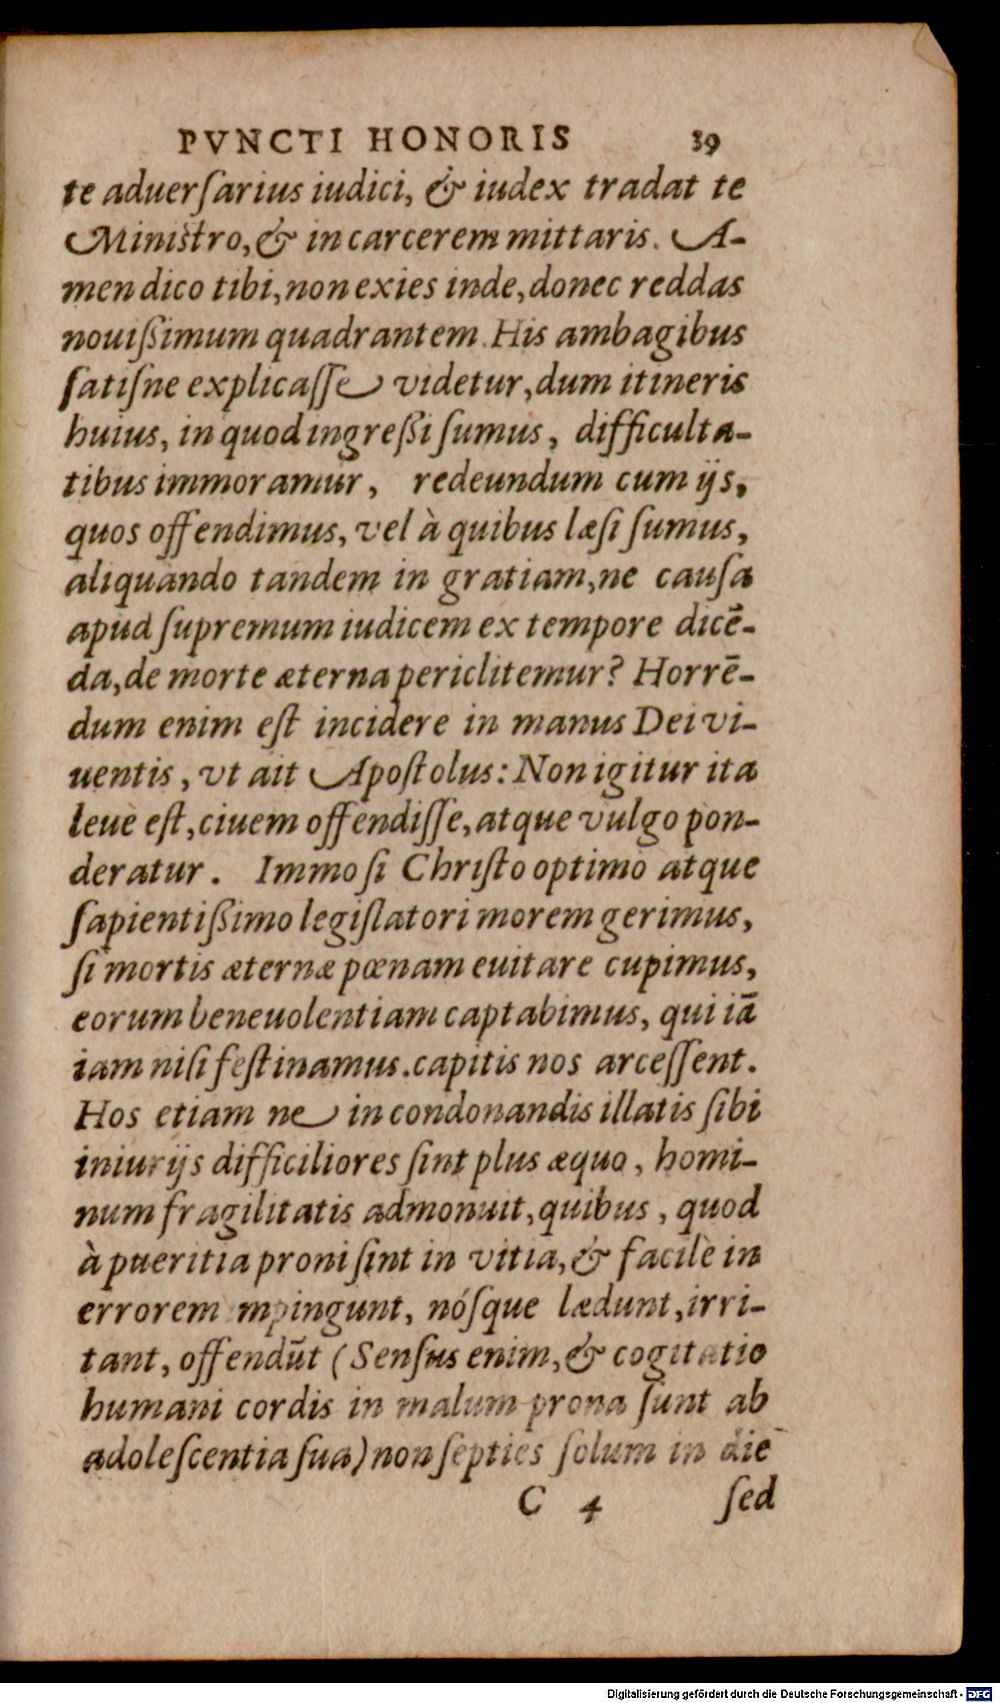 PVNCTI HONORIS 39
te aduerſarius iudici, & iudex tradat te
Miniſtro, & in carcerem mittaris. A-
men dico tibi, non exies inde, donec reddas
nouißimum quadrantem. His ambagibus
ſatiſne explicaſſe videtur, dum itineris
huius, in quod ingreßi ſumus, difficulta-
tibus immoramur, redeundum cum ijs,
quos offendimus, vel à quibus læſi ſumus,
aliquando tandem in gratiam, ne cauſa
apud ſupremum iudicem ex tempore dicē-
da, de morte æterna periclitemur? Horrē-
dum enim eſt incidere in manus Dei vi-
uentis, vt ait Apoſtolus: Non igitur ita
leue eſt, ciuem offendiſſe, atque vulgo pon-
deratur. Immo ſi Chriſto optimo atque
ſapientißimo legiſlatori morem gerimus,
ſi mortis æternæ pœnam euitare cupimus,
eorum beneuolentiam captabimus, qui iā
iam niſi feſtinamus. capitis nos arceſſent.
Hos etiam ne in condonandis illatis ſibi
iniurijs difficiliores ſint plus æquo, homi-
num fragilitatis admonuit, quibus, quod
à pueritia proni ſint in vitia, & facilè in
errorem mpingunt, nóſque lædunt, irri-
tant, offendūt (Senſus enim, & cogitatio
humani cordis in malum prona ſunt ab
adoleſcentia ſua) non ſepties ſolum in die
C 4 ſed
Digitalisierung gefördert durch die Deutsche Forschungsgemeinschaft - DFG